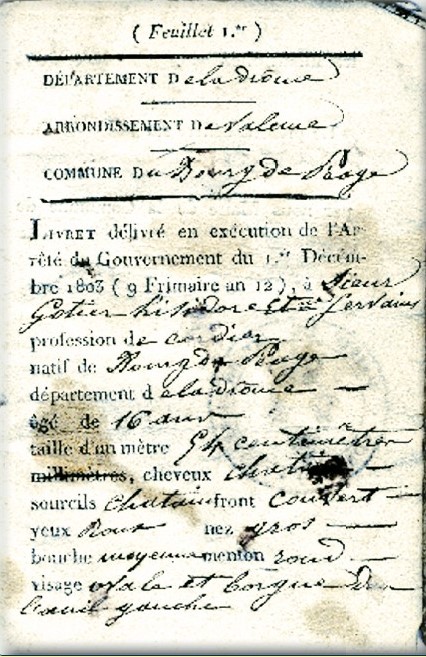 ( Feuillet 1.er )
DÉPARTEMENT De la drome
ARRONDISSEMENT De Valence
COMMUNE Du Bourg de Peage
LIVRET délivré en exécution de l'Ar-
rêté du Gouvernement du 1.er Décem-
bre 1803 ( 9 Frimaire an 12 ), à Sieur
Gotier hisidore Servais
profession de cordier
natif de Bourg de Peage
département de la drome
âgé de 16 ans
taille d'un mètre 54 centimètres
millimètres, cheveux chatain
sourcils chatain front couvert
yeux Roux nez gros
bouche moyenne menton rond
visage ovale et borgne de
l'oeuil gauche